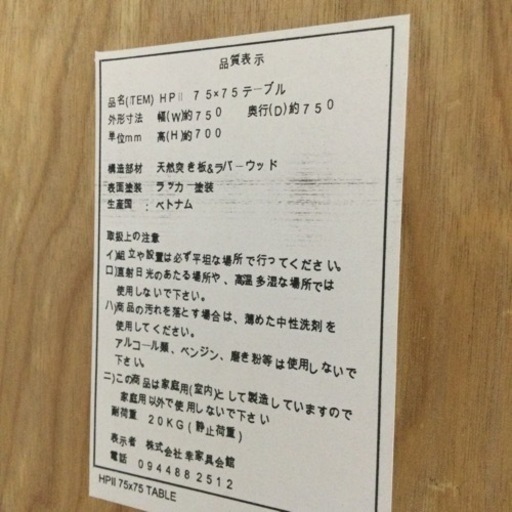 品質表示
品名(ITEM) HPⅡ 75×75テーブル
外形寸法 幅(W)約750 奥行(D)約750
単位mm 高(H)約700
構造部材 天然突き板&ラバーウッド
表面塗装 ラッカー塗装
生産国 : ベトナム
取扱上の注意
イ)組立や設置は必ず平坦な場所で行ってください。
ロ)直射日光のあたる場所や、高温多湿な場所では
使用しないで下さい。
ハ)商品の汚れを落とす場合は、薄めた中性洗剤を
使用してください。
アルコール類、ベンジン、磨き粉等は使用しないで
下さい。
ニ)この商品は家庭用(室内)として製造していますので
家庭用以外で使用しないで下さい
耐荷重 20KG(静止荷重)
表示者 株式会社 幸家具会館
電話 0944882512
HPII 75x75 TABLE